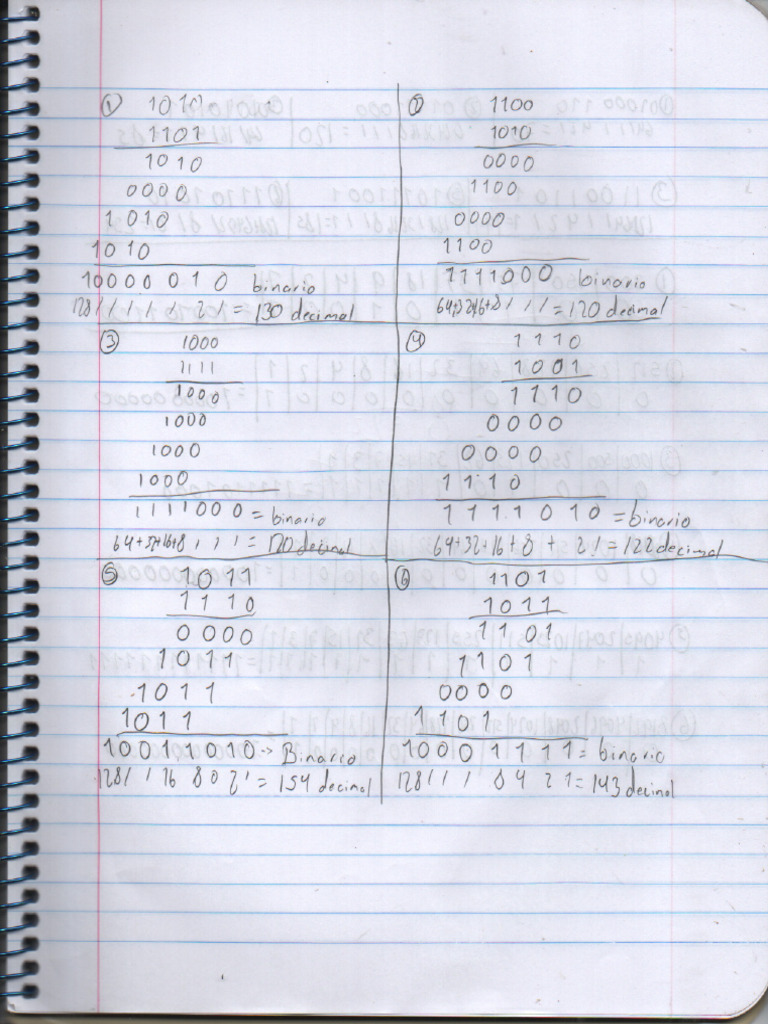 ① 1010
1101
1010
0000
1010
1010
10000010 binario
128/ / / / / 2 / = 130 decimal
② 1100
1010
0000
1100
0000
1100
1111000 binario
64+32+16+8 / / / = 120 decimal
③ 1000
1111
1000
1000
1000
1000
1111000 = binario
64+32+16+8 / / / = 120 decimal
④ 1110
1001
1110
0000
0000
1110
1111010 = binario
64+32+16+8 + 2 / = 122 decimal
⑤ 1011
1110
0000
1011
1011
1011
10011010 -> Binario
128/ / 16 8 0 2 / = 154 decimal
⑥ 1101
1011
1101
1101
0000
1101
10001111 = binario
128 / / / 8 4 2 1 = 143 decimal